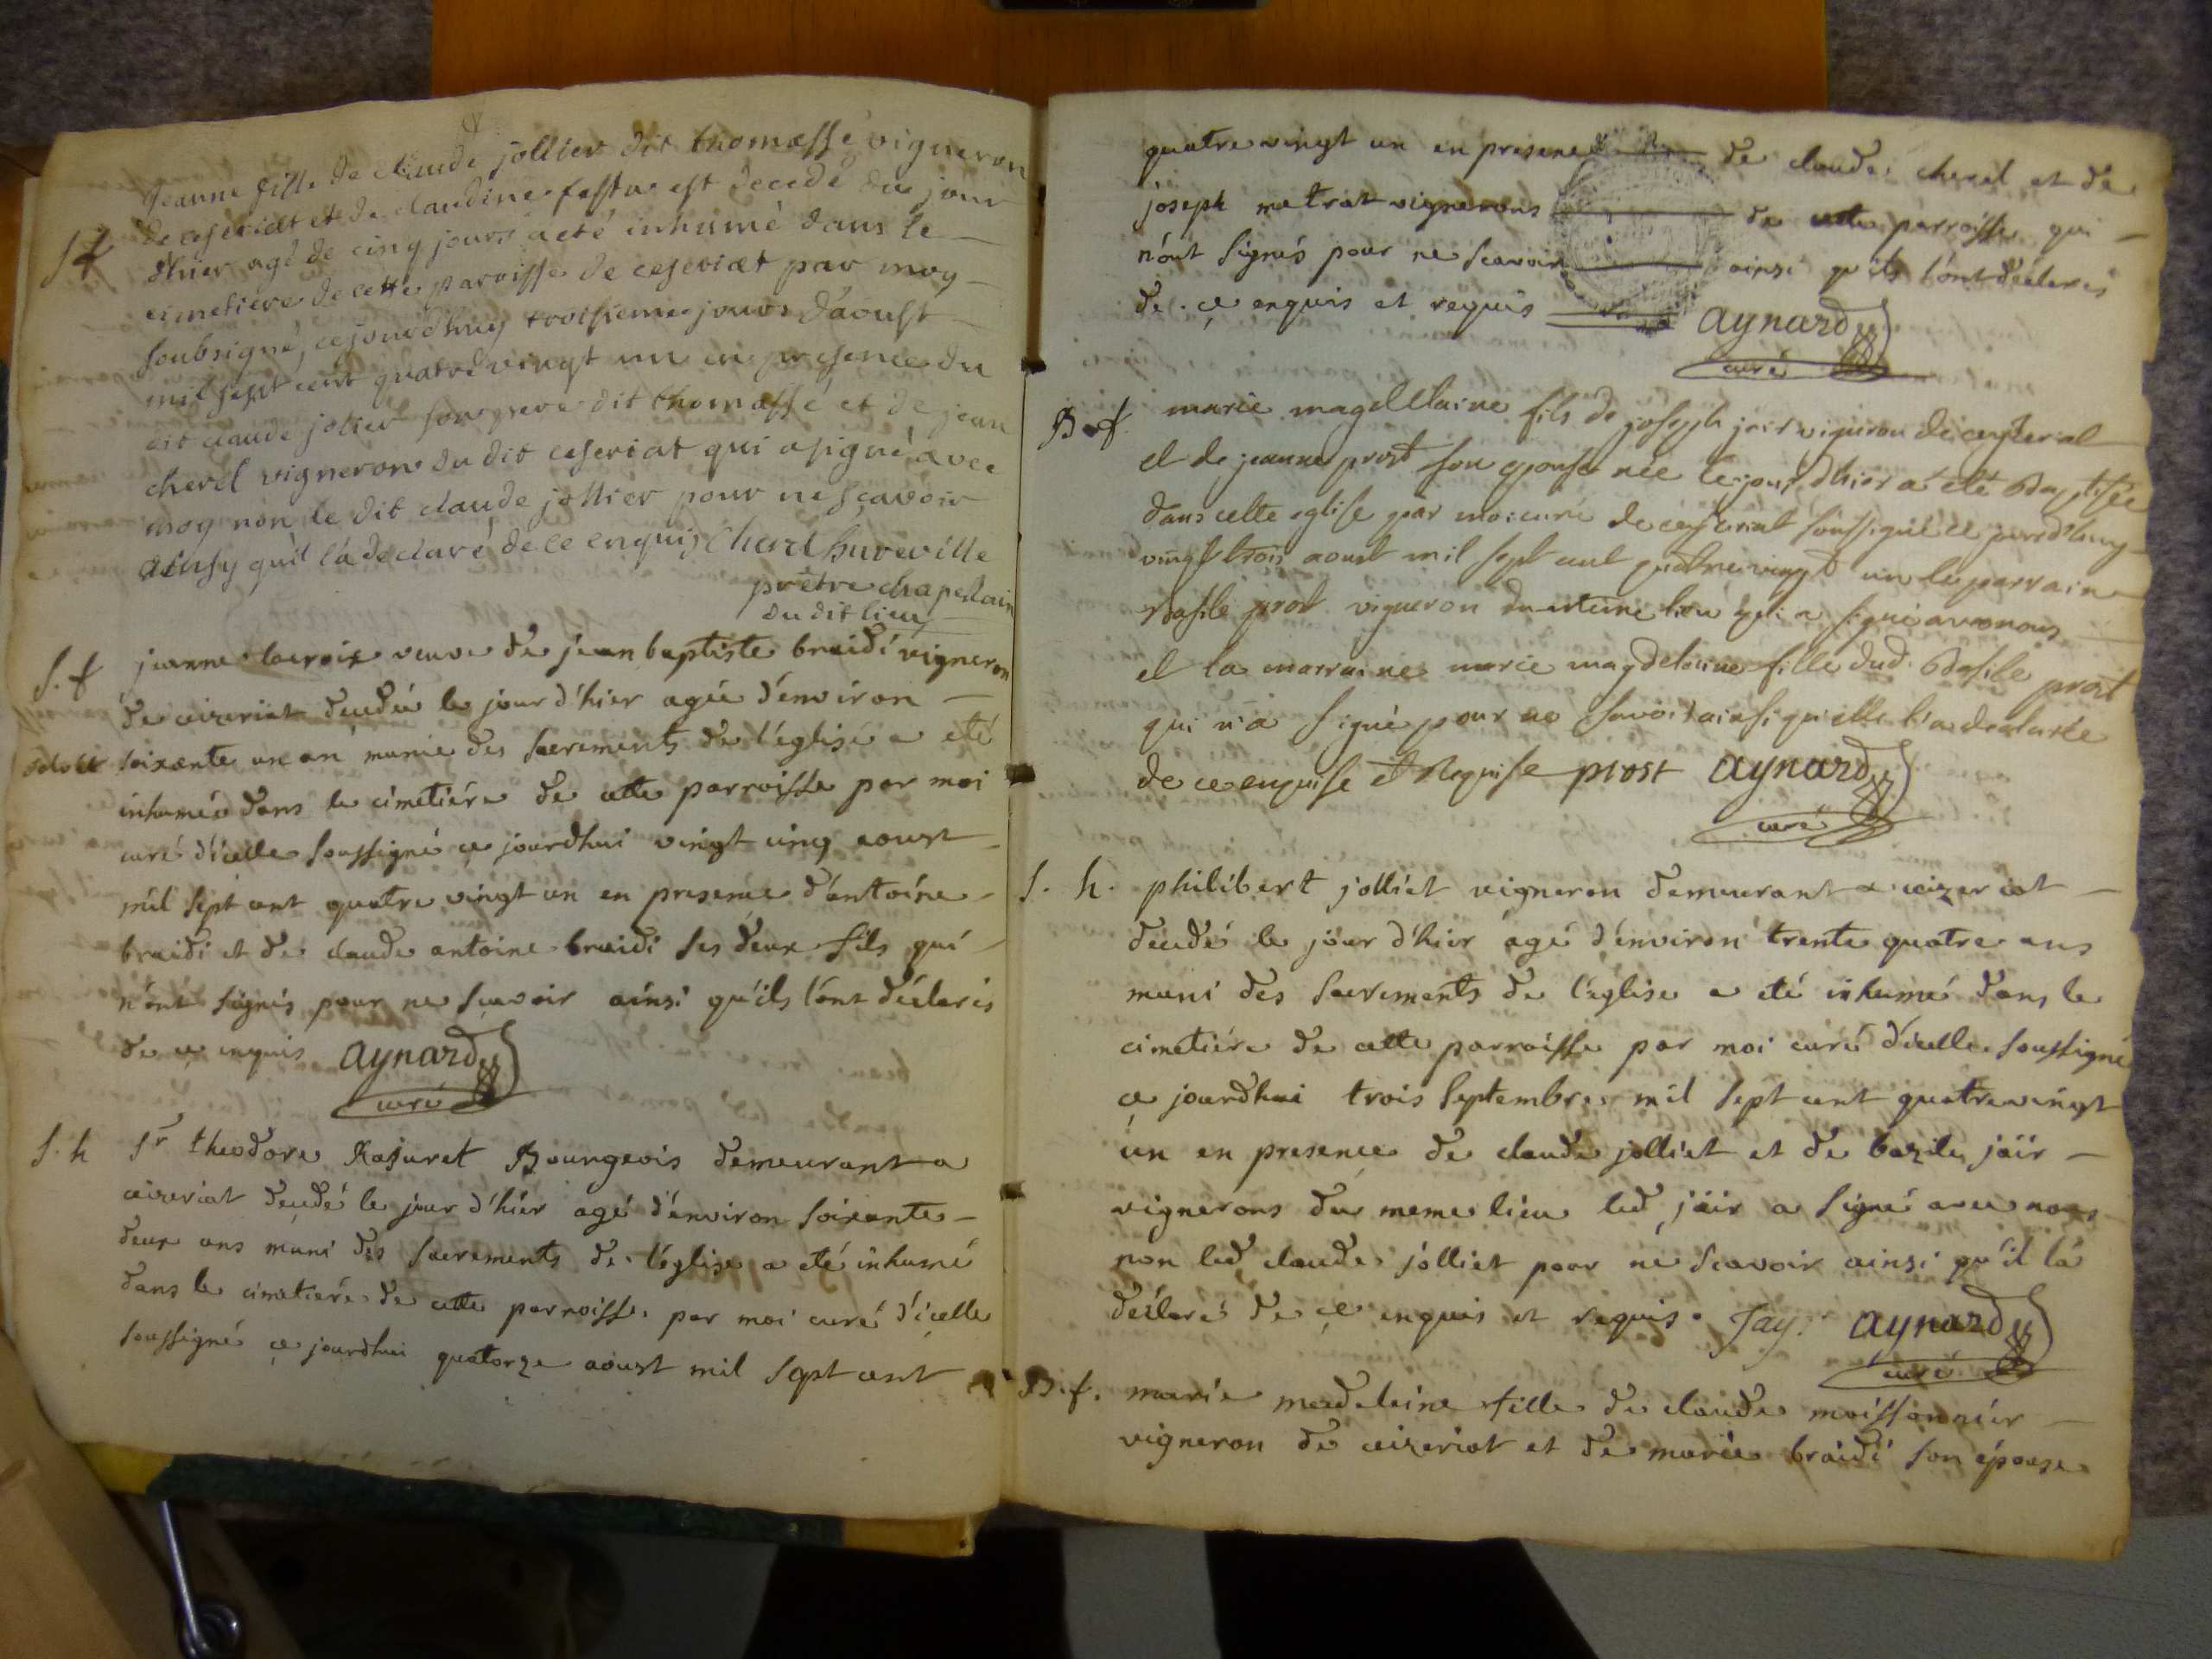 jeanne fille de claude jollier dit thomassé vigneron
S f de ceseriat et de claudine festu est decedé du jour
d'hier agé de cinq jours a eté inhumé dans le
cimetiere de cette paroisse de ceseriat par moy
soubsigné, cejourdhuy troisieme jours d'aoust
mil sept cent quatre vingt un en presence du
dit claude jolier son pere dit thomassé et de jean
cherel vigneron du dit ceseriat qui a signé avec
moy non le dit claude jollier pour ne sçavoir
ainsy qu'il l'a declaré de ce enquis Cherel hureville
prêtre chapellain
du dit lieu
S. f jeanne lacroix veuve de jean baptiste braidi vigneron
de ceizeriat decedée le jour d'hier agée d'environ
soixante un an munie des sacrements de l'église a eté
inhumée dans le cimetiére de cette parroisse par moi
curé d'icelle soussigné ce jourdhui vingt cinq aoust
mil sept cent quatre vingt un en presence d'antoine
braidi et de claude antoine braidi ses deux fils qui
n'ont signés pour ne scavoir ainsi qu'ils l'ont déclarés
de ce enquis aynard
curé
S. h Sr theodore Rajuret Bourgeois demeurant a
ceizeriat decedé le jour d'hier agé d'environ soixante
deux ans muni des sacrements de l'église a eté inhumé
dans le cimetiere de cette parroisse par moi curé d'icelle
soussigné ce jourdhui quatorze aoust mil sept cent
quatre vingt un en presence de claude cherel et de
joseph metrat vignerons de cette parroisse qui
n'ont signés pour ne scavoir ainsi qu'ils l'ont déclarés
de ce enquis et requis aynard
curé
B. f. marie magdelaine fils de joseph jair vigneron de ceyzeriat
et de jeanne prost son epouse née le jour d'hier a eté Baptisée
dans cette eglise par moi curé de ceyzeriat soussigné ce jourdhuy
vingt trois aoust mil sept cent quatre vingt un le parrain
Basile prost vigneron du meme lieu qui a signé avec nous
et la marraine marie magdelaine fille dud. Basile prost
qui n'a signé pour ne savoir ainsi qu'elle l'a declarée
de ce enquise et Requise prost aynard
curé
S. h. philibert jolliet vigneron demeurant a ceizeriat
decedé le jour d'hier agé d'environ trente quatre ans
muni des sacrements de l'église a eté inhumé dans le
cimetiére de cette parroisse par moi curé d'icelle soussigné
ce jourdhui trois septembre mil sept cent quatre vingt
un en presence de claude jolliet et de bazile jair
vignerons du meme lieu led jair a signé avec nous
non led claude jolliet pour ne scavoir ainsi qu'il la
déclaré de ce enquis et requis. Jayr aynard
curé
B. f. marie madeleine fille de claude moissonnier
vigneron de ceizeriat et de marie braidi son épouse